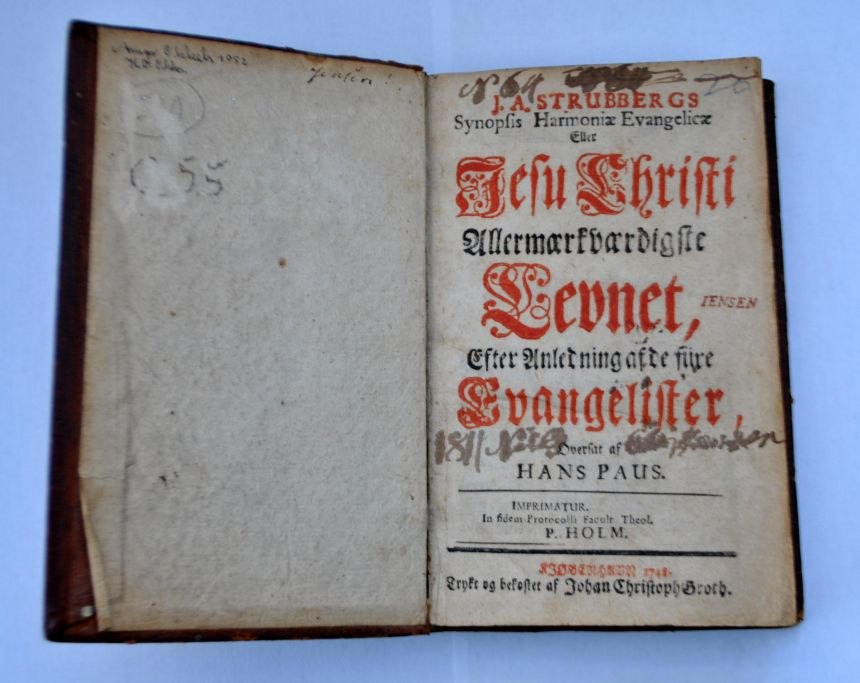 1952
C. 55
Jensen!
N. 64
J. A. STRUBBERGS
Synopsis Harmoniæ Evangelicæ
Eller
Jesu Christi
Allermærkværdigste
Levnet,
JENSEN
Efter Anledning af de fiire
Evangelister,
1811
Oversat af
HANS PAUS.
IMPRIMATUR.
In fidem Protocolli Facult Theol.
P. HOLM.
KJØBENHAVN 1748.
Trykt og bekostet af Johan Christoph Groth.